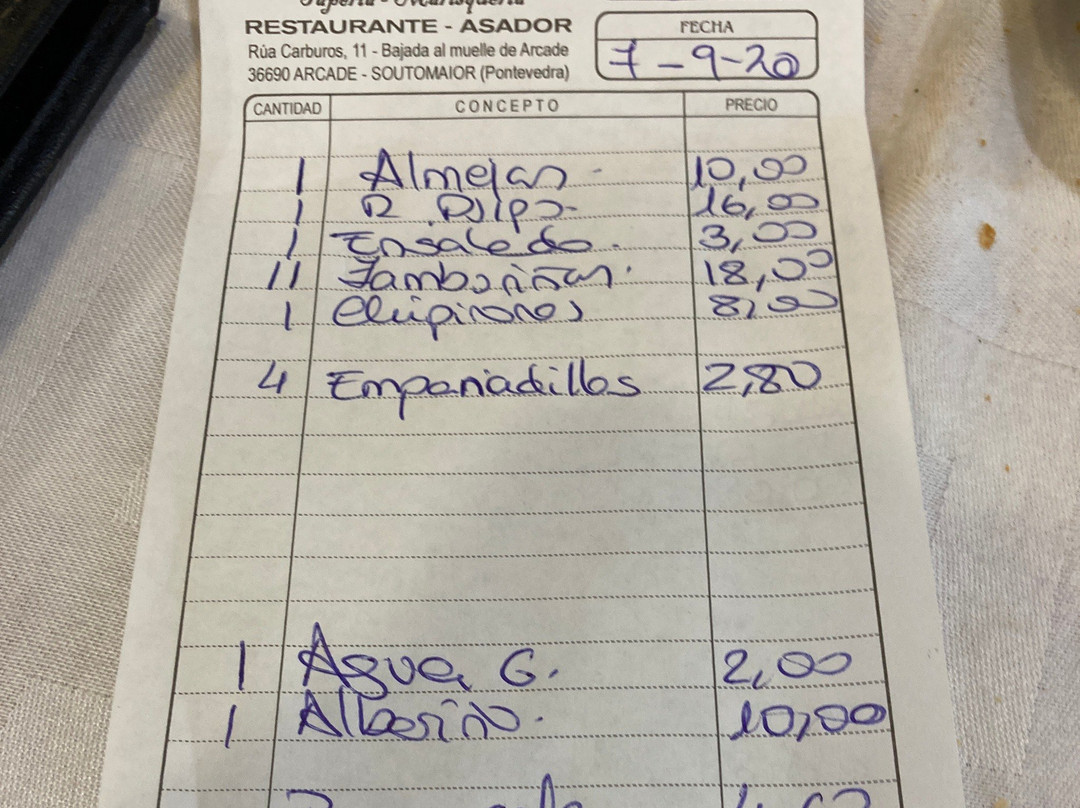 RESTAURANTE - ASADOR
Rúa Carburos, 11 - Bajada al muelle de Arcade
36690 ARCADE - SOUTOMAIOR (Pontevedra)
FECHA
7-9-20
CANTIDAD CONCEPTO PRECIO
1 Almejas 10,00
1 R. Pulpo 16,00
1 Ensalada. 3,00
11 Zamboriñas. 18,00
1 Chipirones 8,00
4 Empanadillas 2,80
1 Agua G. 2,00
1 Albariño. 10,00